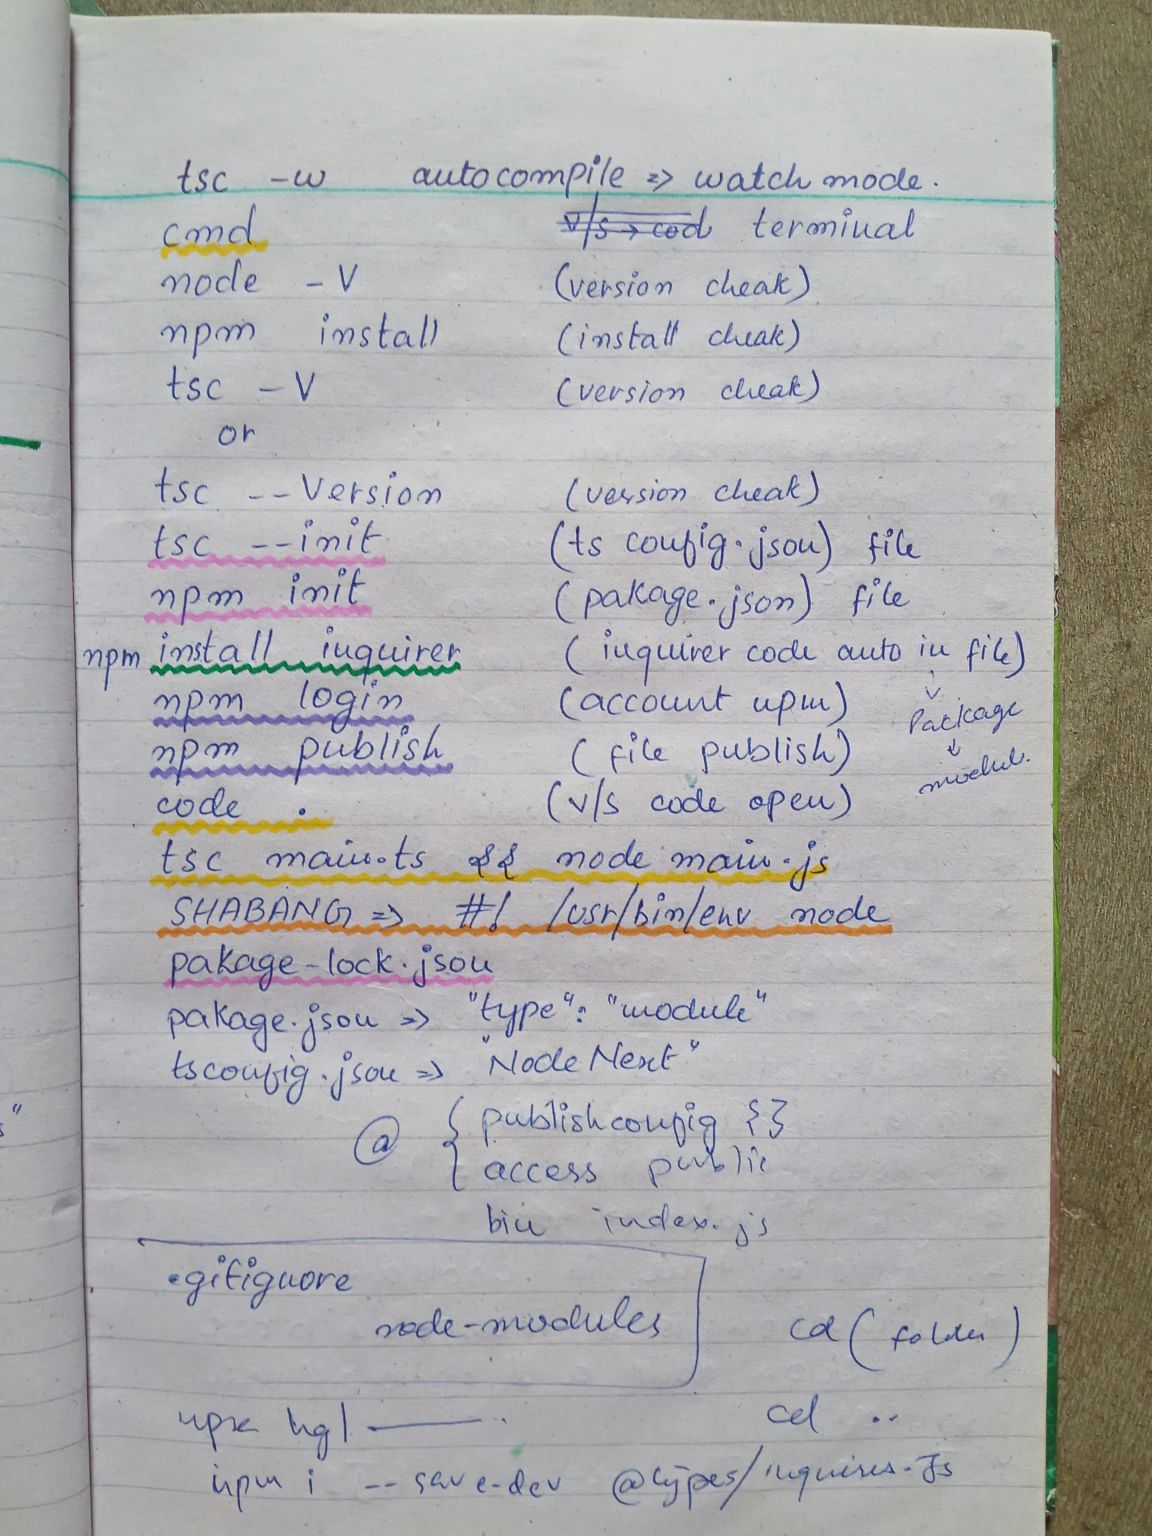 tsc -w autocompile => watch mode.
cmd v/s → cod terminal
node -V (version cheak)
npm install (install cheak)
tsc -V (version cheak)
or
tsc --Version (version cheak)
tsc --init (ts config.json) file
npm init (pakage.json) file
npm install inquirer (inquirer code auto in file)
npm login (account npm) Package
npm publish (file publish) modul.
code . (v/s code open)
tsc main.ts && node main.js
SHABANG => #! /usr/bin/env node
pakage-lock.json
pakage.json => "type": "module"
tsconfig.json => "NodeNext"
@ { publishconfig {}
access public
bin index.js
.gitignore
node-modules cd (folder)
npx cd ..
npm i --save-dev @types/